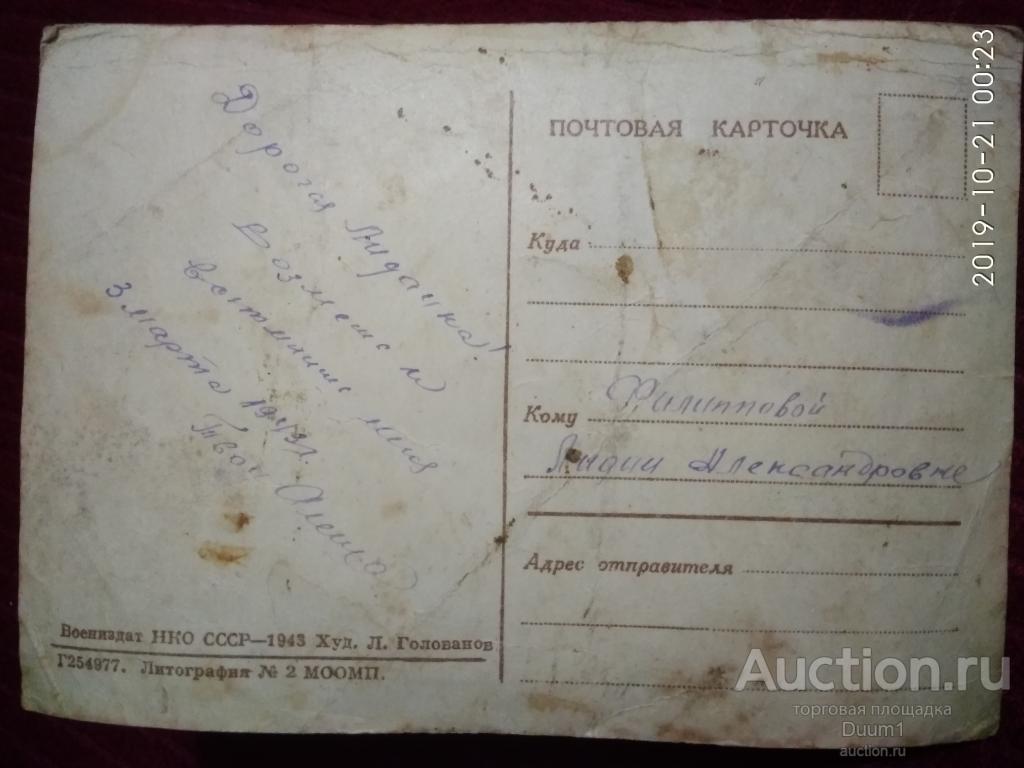 Дорогая Лидочка!
Возмеш и
вспомнишь меня
3 марта 1943г.
Твой Алеша
Воениздат НКО СССР—1943 Худ. Л. Голованов
Г254977. Литография № 2 МООМП.
ПОЧТОВАЯ КАРТОЧКА
Куда
Кому Филипповой
Лидии Александровне
Адрес отправителя
2019-10-21 00:23
Auction.ru
торговая площадка
Duum1
auction.ru